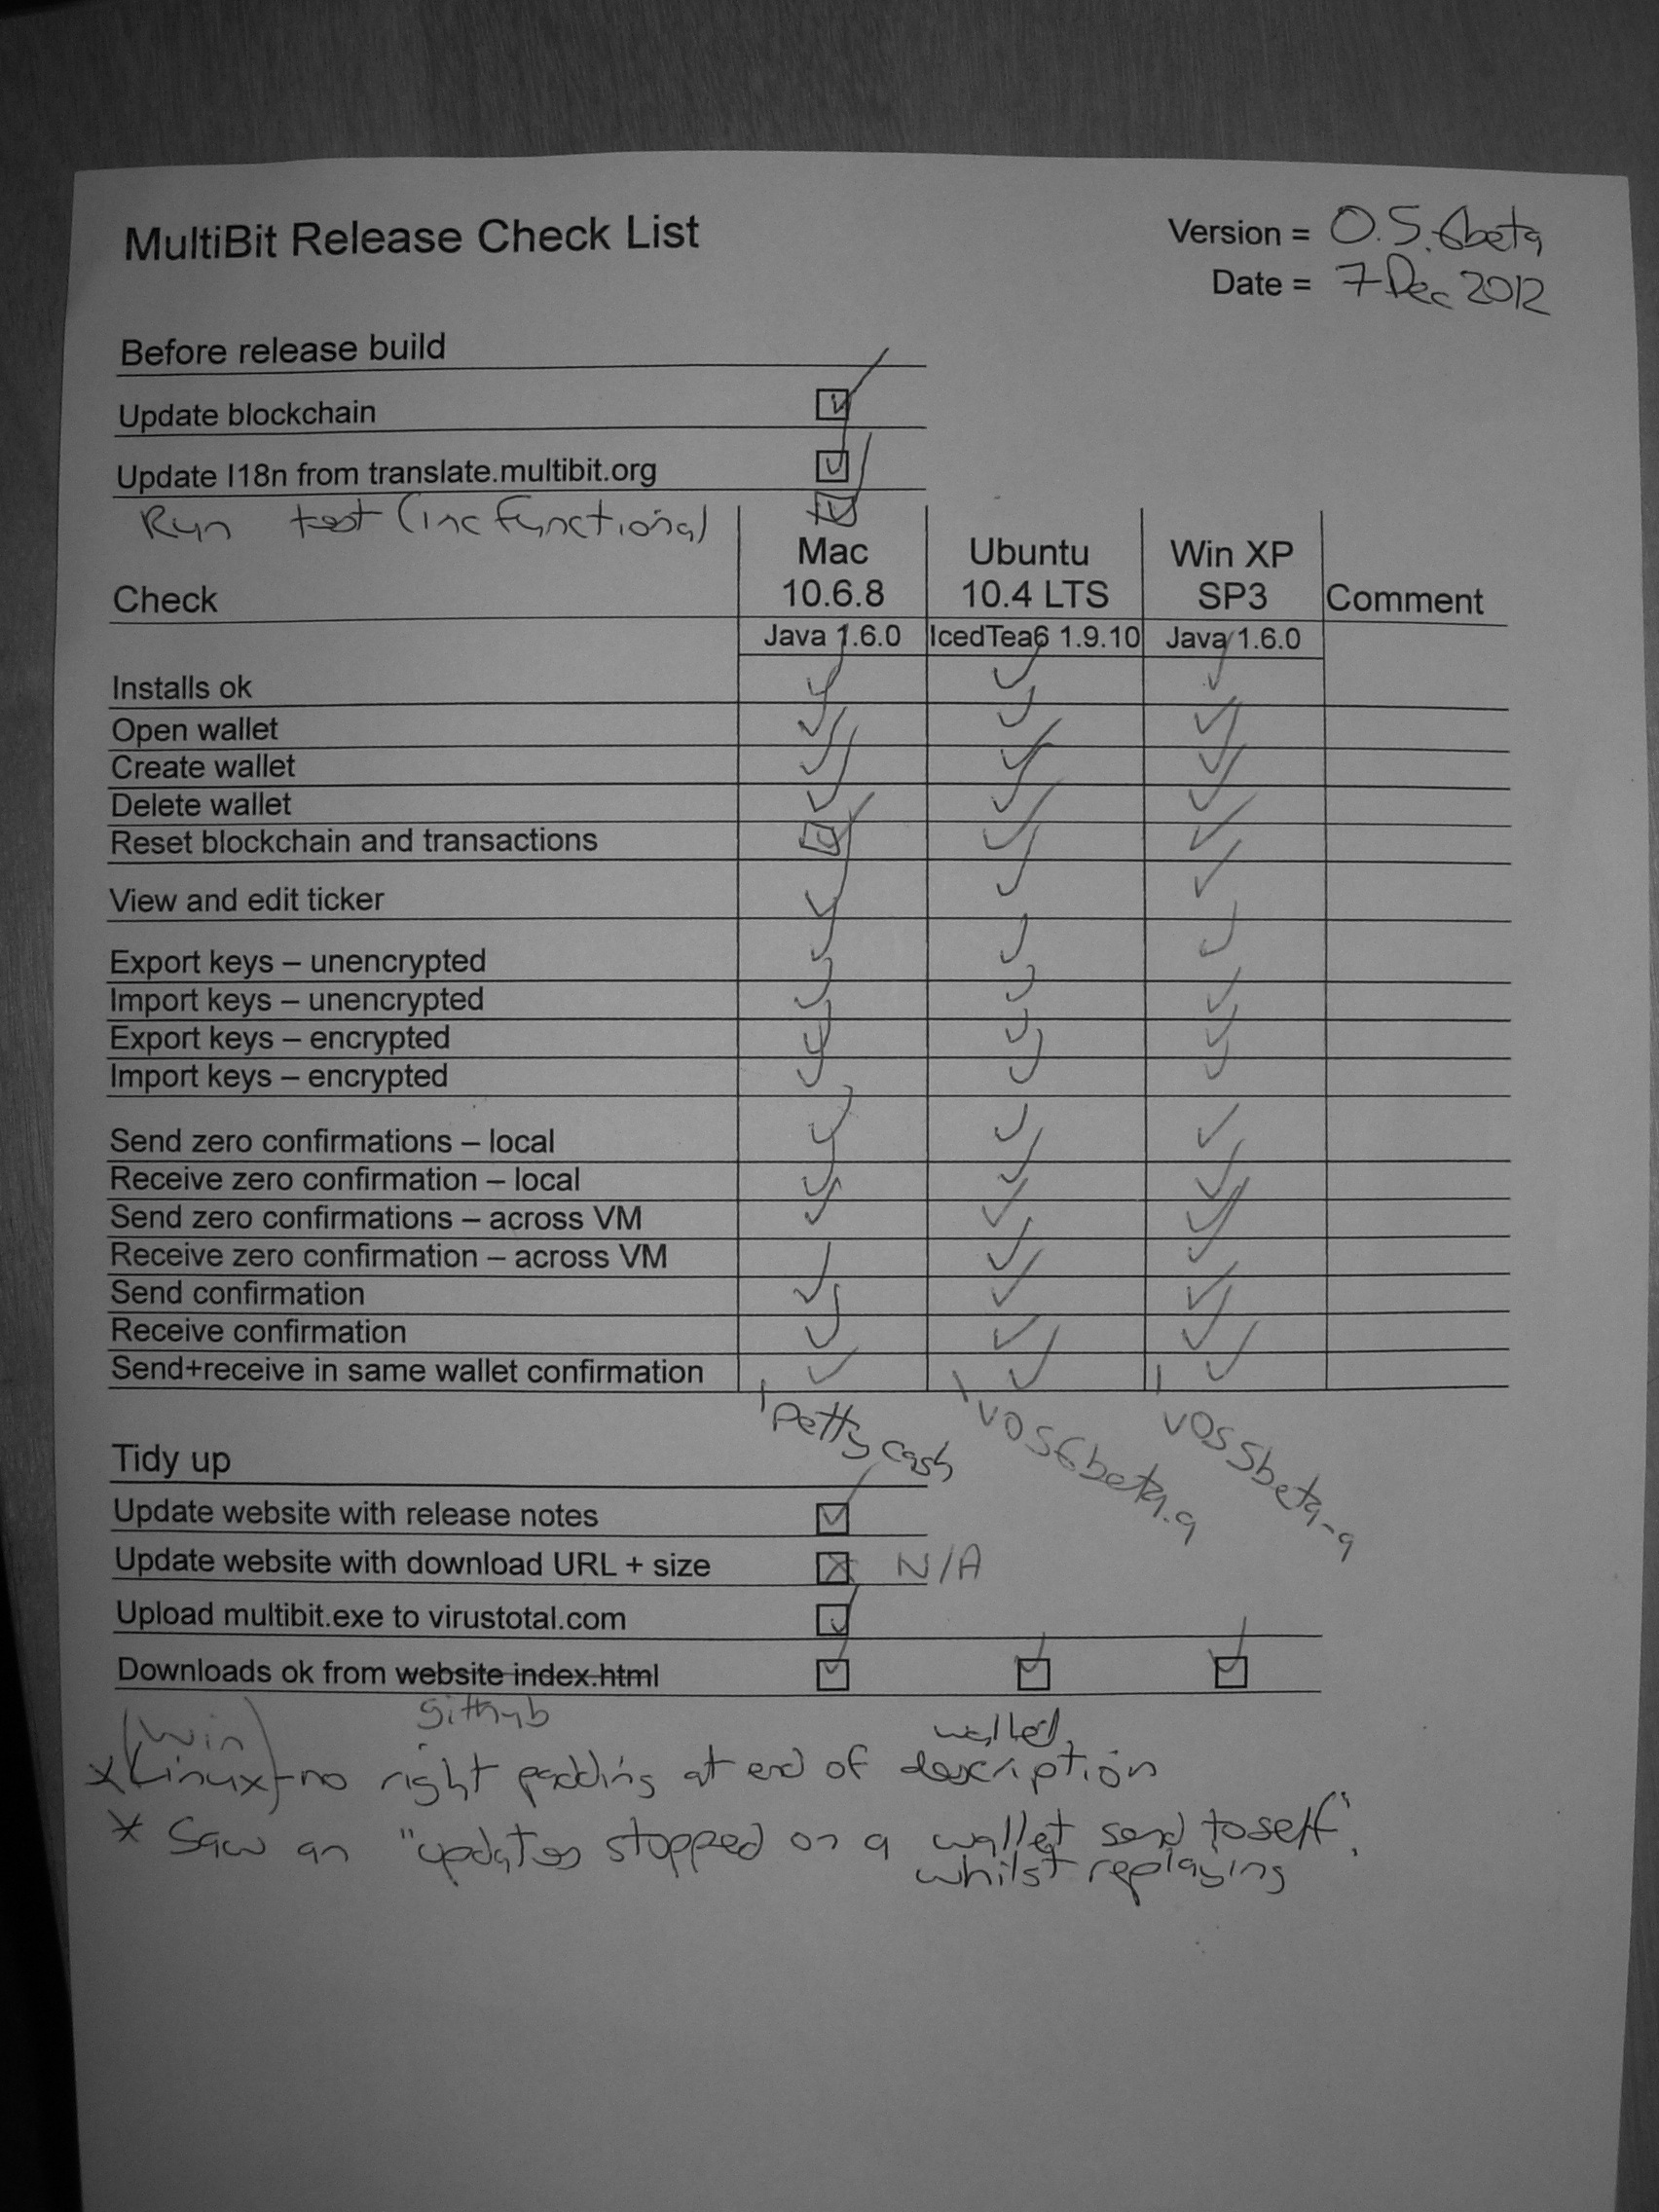 MultiBit Release Check List
Version = 0.5.6beta
Date = 7 Dec 2012
Before release build
Update blockchain
Update I18n from translate.multibit.org
Run test (inc functional)
Check Mac 10.6.8 Ubuntu 10.4 LTS Win XP SP3 Comment
Java 1.6.0 IcedTea6 1.9.10 Java 1.6.0
Installs ok
Open wallet
Create wallet
Delete wallet
Reset blockchain and transactions
View and edit ticker
Export keys – unencrypted
Import keys – unencrypted
Export keys – encrypted
Import keys – encrypted
Send zero confirmations – local
Receive zero confirmation – local
Send zero confirmations – across VM
Receive zero confirmation – across VM
Send confirmation
Receive confirmation
Send+receive in same wallet confirmation
Petty cash v056beta.9 v055beta-9
Tidy up
Update website with release notes
Update website with download URL + size N/A
Upload multibit.exe to virustotal.com
Downloads ok from website index.html
github
(Win) wallet
x Linux - no right padding at end of description
* Saw an "updates stopped on a wallet send to self".
whilst replaying